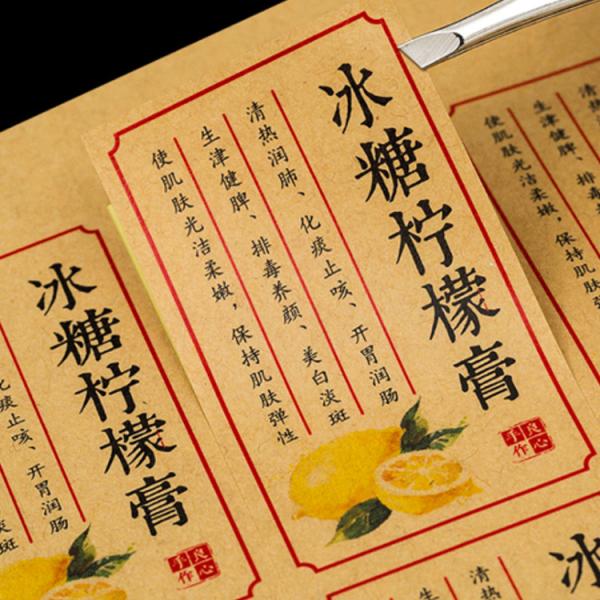 冰糖柠檬膏
清热润肺、化痰止咳、开胃润肠
生津健脾、排毒养颜、美白淡斑
使肌肤光洁柔嫩，保持肌肤弹性
良心
手作
冰糖柠檬膏
化痰止咳、开胃润肠
淡斑
良心
手作
清热
生津健脾、排毒养
使肌肤光洁柔嫩，保持肌肤弹
冰
清热
生